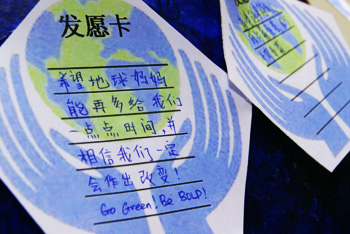 发愿卡
希望地球妈妈
能再多给我们
一点点时间,并
相信我们一定
会作出改变!
Go Green! Be BOLD!